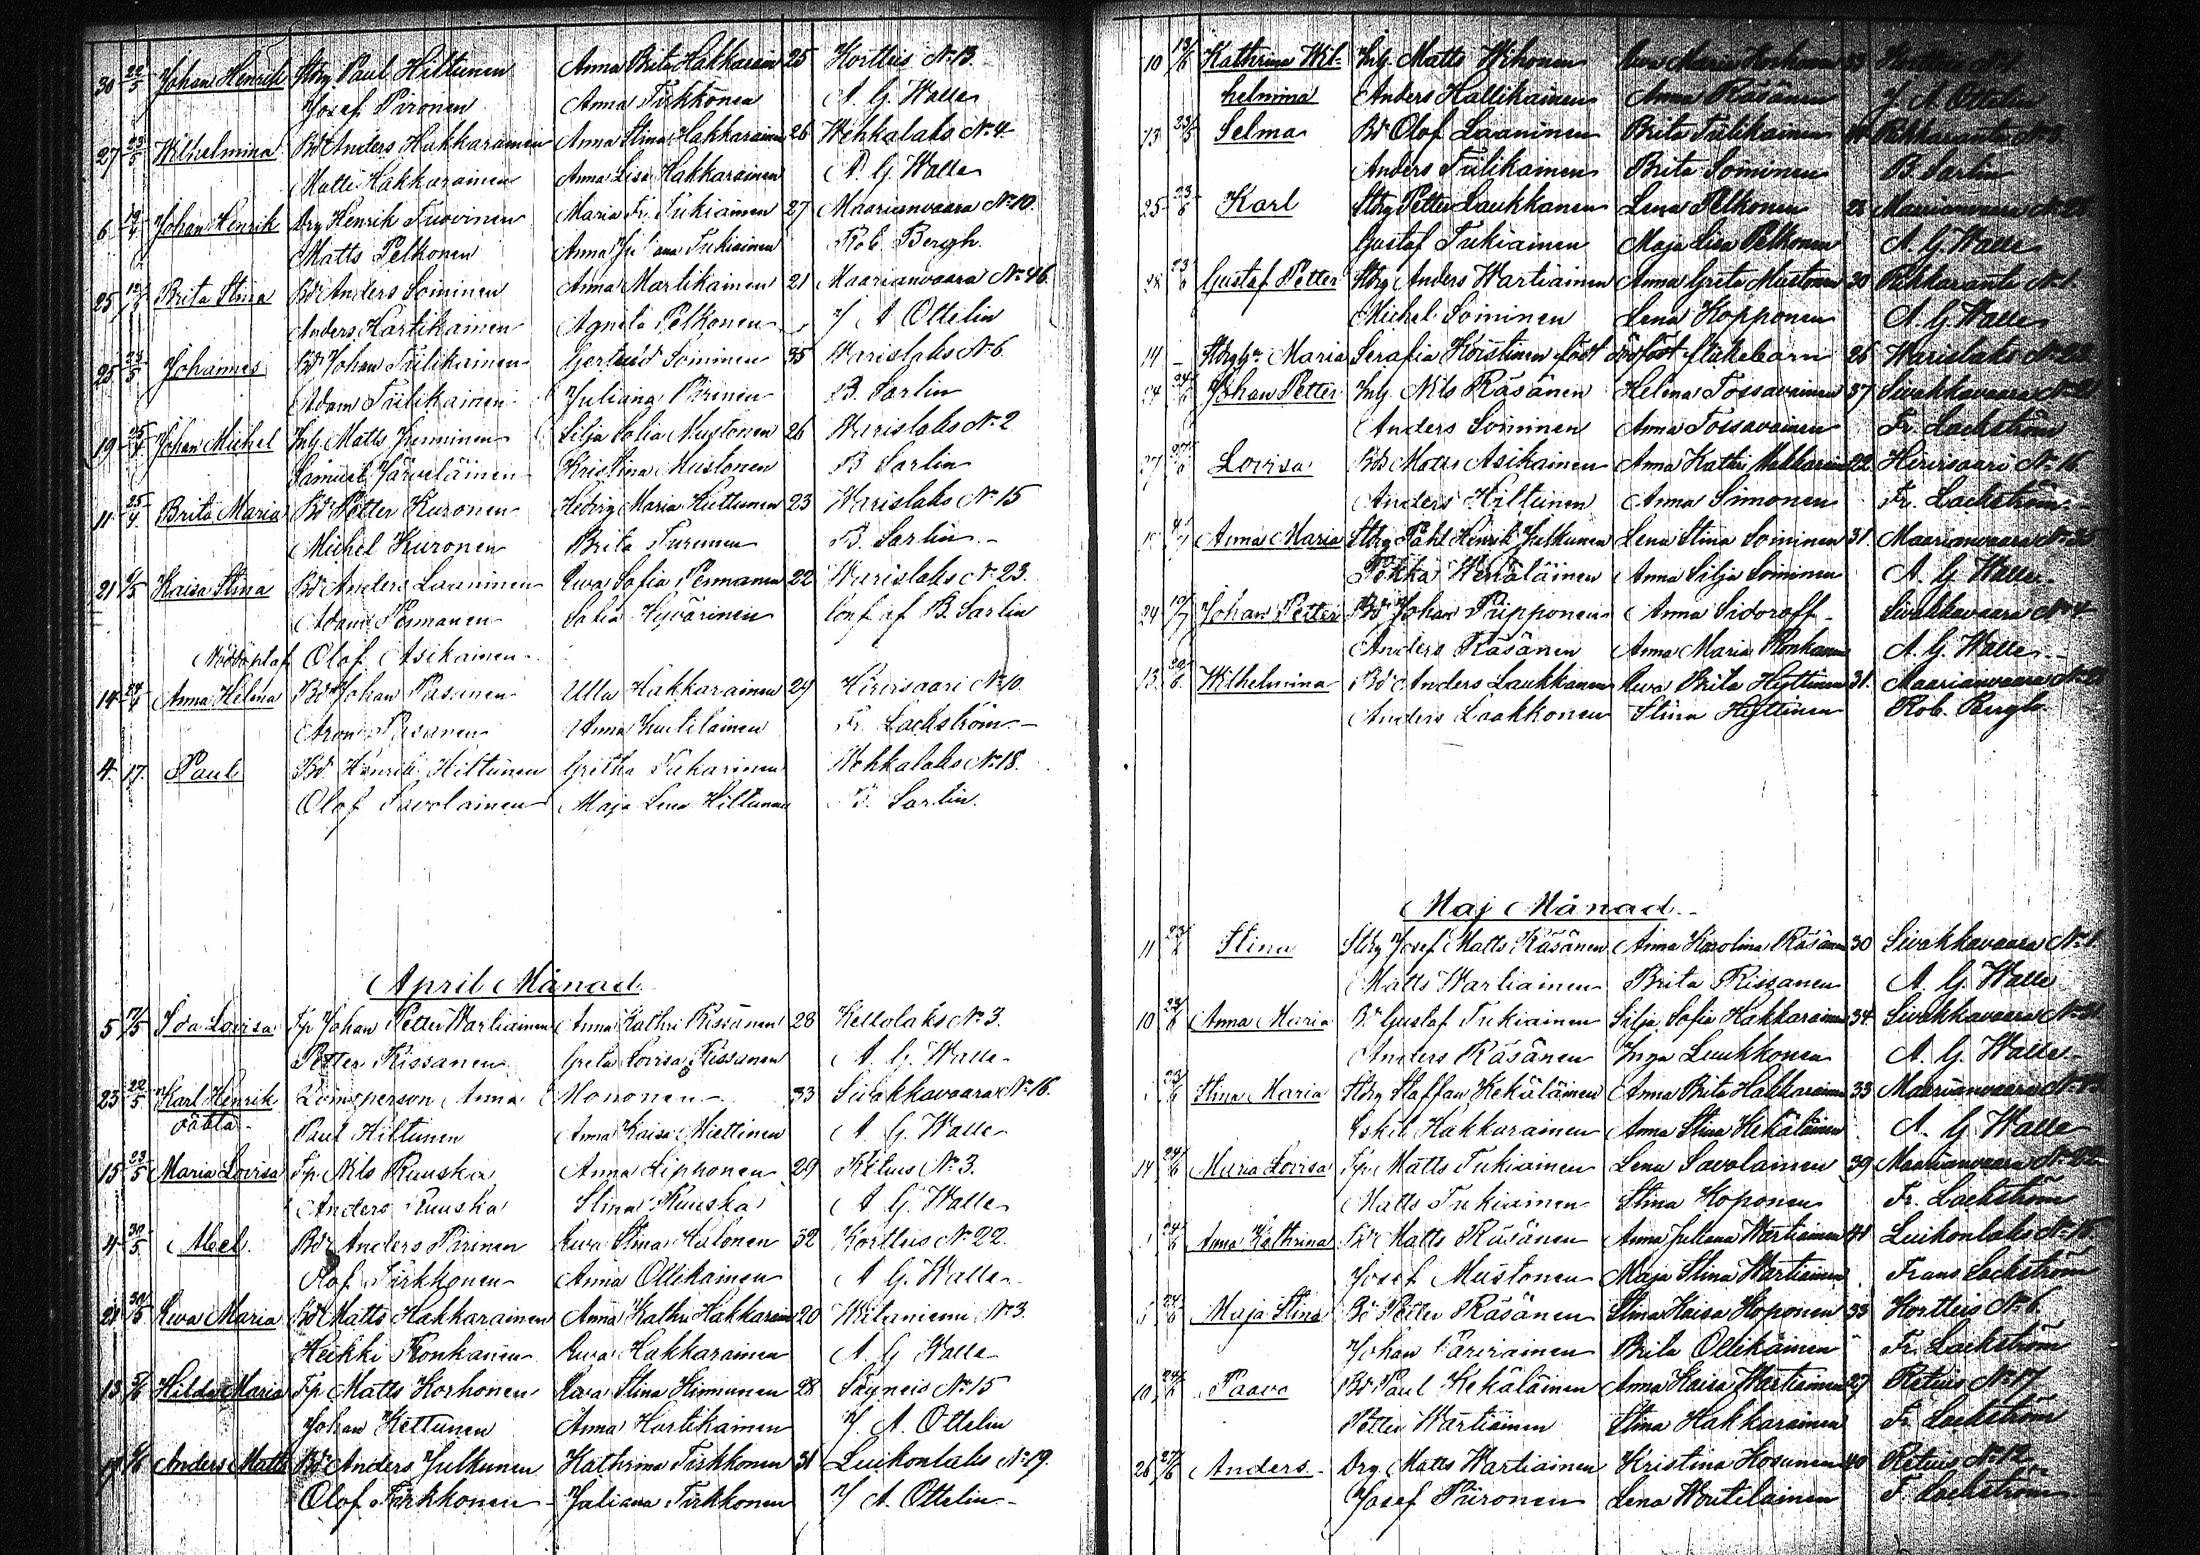 30 22/5 Johan Henrik Stbg Paul Hiltunen Anna Brita Hakkarain 25 Kortteis No 13.
Josef Pironen Anna Tirkkonen A. G. Walle
27 23/5 Wilhelmina Bd Anders Hakkarainen Anna Stina Hakkarainen 26 Wehkalaks No 4
Matti Hakkarainen Anna Lisa Hakkarainen A. G. Walle
6 Johan Henrik Drg Henrik Tuovinen Maria Fr. Tukiainen 27 Maarianvaara No 10.
Matts Pelkonen Anna Tukiainen Rob. Bergh.
25 Brita Stina Bdr Anders Sominen Anna Martikainen 21 Maarianvaara No 46.
Anders Hartikainen Agneta Pelkonen J A Ottelin
25 Johannes Bdr Johan Tiilikainen Gertrud Sominen 35 Warislaks No 6.
Adam Tiilikainen Juliana Pirinen B. Sarlin
19 25/4 Johan Michel Inh. Matts Junninen Silja Sofia Mustonen 26 Warislaks No 2
Samuel Järveläinen Kristina Mustonen B Sarlin
11 25/4 Brita Maria Bdr Petter Kuronen Hedvig Maria Huttunen 23 Warislaks No 15
Michel Kuronen Brita Turunen B. Sarlin
21 6/5 Kaisa Stina Bdr Anders Laaninen Ewa Sofia Permanen 22 Warislaks No 23.
Adam Permanen Sofia Hyvärinen conf af B. Sarlin
Nöddöpt af Olof Asikainen
14 Anna Helena Bdr Johan Pasanen Ulla Hakkarainen 24 Hirvisaari No 10.
Aron Pasanen Anna Fr. Lackström
4. 17. Paul Bd Henrik Hiltunen Gretha Tukarinen Wehkalaks No 18.
Olof Savolainen Maja Lena Hiltunen B. Sarlin.
April Månad
5 12/5 Ida Lovisa Tp Johan Petter Wartiainen Anna Kathri Rissanen 28 Kellolaks No 3.
Petter Rissanen Greta Lovisa Rissanen A. G. Walle
23 22/5 Karl Henrik Qvinsperson Anna Mononen 33 Sivakkavaara No 16.
oäkta Paul Hiltunen Anna Kaisa Miettinen A G. Walle
15 23/5 Maria Lovisa Tp Nils Ruuska Anna Lipponen 29 Retuis No 3.
Anders Ruuska Stina Ruuska A G. Walle
4 30/5 Abel Bdr Anders Pirinen Ewa Stina Halonen 32 Kortteis No 22.
Olof Tirkkonen Anna Ollikainen A G. Walle
21 30/5 Ewa Maria Bdr Matts Hakkarainen Anna Kathri Hakkarain 20 Witaniemi No 3.
Heikki Konkanen Ewa Hakkarainen A. G Walle
13 5/6 Hilda Maria Tp Matts Korhonen Ewa Stina Kinnunen 28 Säyneis No 15
Johan Kettunen Anna Hartikainen J. A. Ottelin
19 6/6 Anders Matts Bdr Anders Julkunen Kathrina Tirkkonen 31 Luikonlaks No 19.
Olof Tirkkonen Juliana Tirkkonen J A. Ottelin
10 13/6 Kathrina Wil- Inh. Matts Wihonen Ewa Maria
helmina Anders Hallikainen Anna Räsänen J A Ottelin
13 Selma Bdr Olof Laaninen Brita Tiilikainen Pikkaranta
Anders Tiilikainen Brita Sominen B. Sarlin
25 23/6 Karl Stbg Petter Laukkanen Lena Pelkonen 28 Maarianvaara
Gustaf Tukiainen Maja Lisa Pelkonen A G Walle
28 23/6 Gustaf Petter Stbg Anders Wartiainen Anna Greta Mustonen 30 Pikkaranta No 1.
Michel Sominen Lena Kopponen A. G. Walle
14 Maria Serafia Koistinen född dödfödt flickebarn 26 Warislaks
24 24/6 Johan Petter Inh. Nils Räsänen Helena Tossavainen 37 Sivakkavaara
Anders Sominen Anna Tossavainen Fr. Lackström
27 27/6 Lovisa Bdr Matts Asikainen Anna Kathri Hakkarain 22 Hirvisaari No 16.
Anders Hiltunen Anna Simonen Fr. Lackström
Anna Maria Stbg Påhl Henrik Julkunen Lena Stina Sominen 31. Maarianvaara
Pekka Anna Silja Sominen A. G Walle
24 Johan Petter Bdr Johan Piipponen Anna Sidoroff Sivakkavaara No 4
Anders Räsänen Anna Maria Ronkanen A. G. Walle
13 Wilhelmina Bdr Anders Laukkanen Ewa Brita Hyttinen 31. Maarianvaara
Anders Laakkonen Stina Hyttinen Rob. Bergh
Maj Månad
11 23/6 Stina Stbg Josef Matts Räsänen Anna Karolina Räsänen 30 Sivakkavaara No 1.
Matts Wartiainen Brita Rissanen A. G. Walle
10 Anna Maria Bdr Gustaf Tukiainen Silja Sofia Hakkarainen 34. Sivakkavaara
Anders Räsänen Inga Luukkonen A. G. Walle
23/6 Stina Maria Stbg Staffan Kekäläinen Anna Brita Hakkarainen 33 Maarianvaara
Eskil Hakkarainen Anna Stina Kekäläinen A. G Walle
14 24/6 Maria Lovisa Tp Matts Tukiainen Lena Savolainen 39 Maarianvaara
Matts Tukiainen Stina Koponen Fr. Lackström
24/6 Anna Kathrina Bdr Matts Räsänen Anna Juliana Wartiainen 41 Luikonlaks
Josef Mustonen Maja Stina Wartiainen Frans Lackström
24/6 Maja Stina Bd Petter Räsänen Stina Kaisa Koponen 33 Kortteis No 6.
Johan Brita Ollikainen Fr. Lackström
10 24/6 Paavo Bdr Paul Kekäläinen Anna Kaisa Wartiainen 27 Retuis No 17
Petter Wartiainen Stina Hakkarainen Fr Lackström
26 Anders Drg Matts Wartiainen Kristina Kosunen 40 Retuis No 12
Josef Piironen Lena Woutilainen F. Lackström